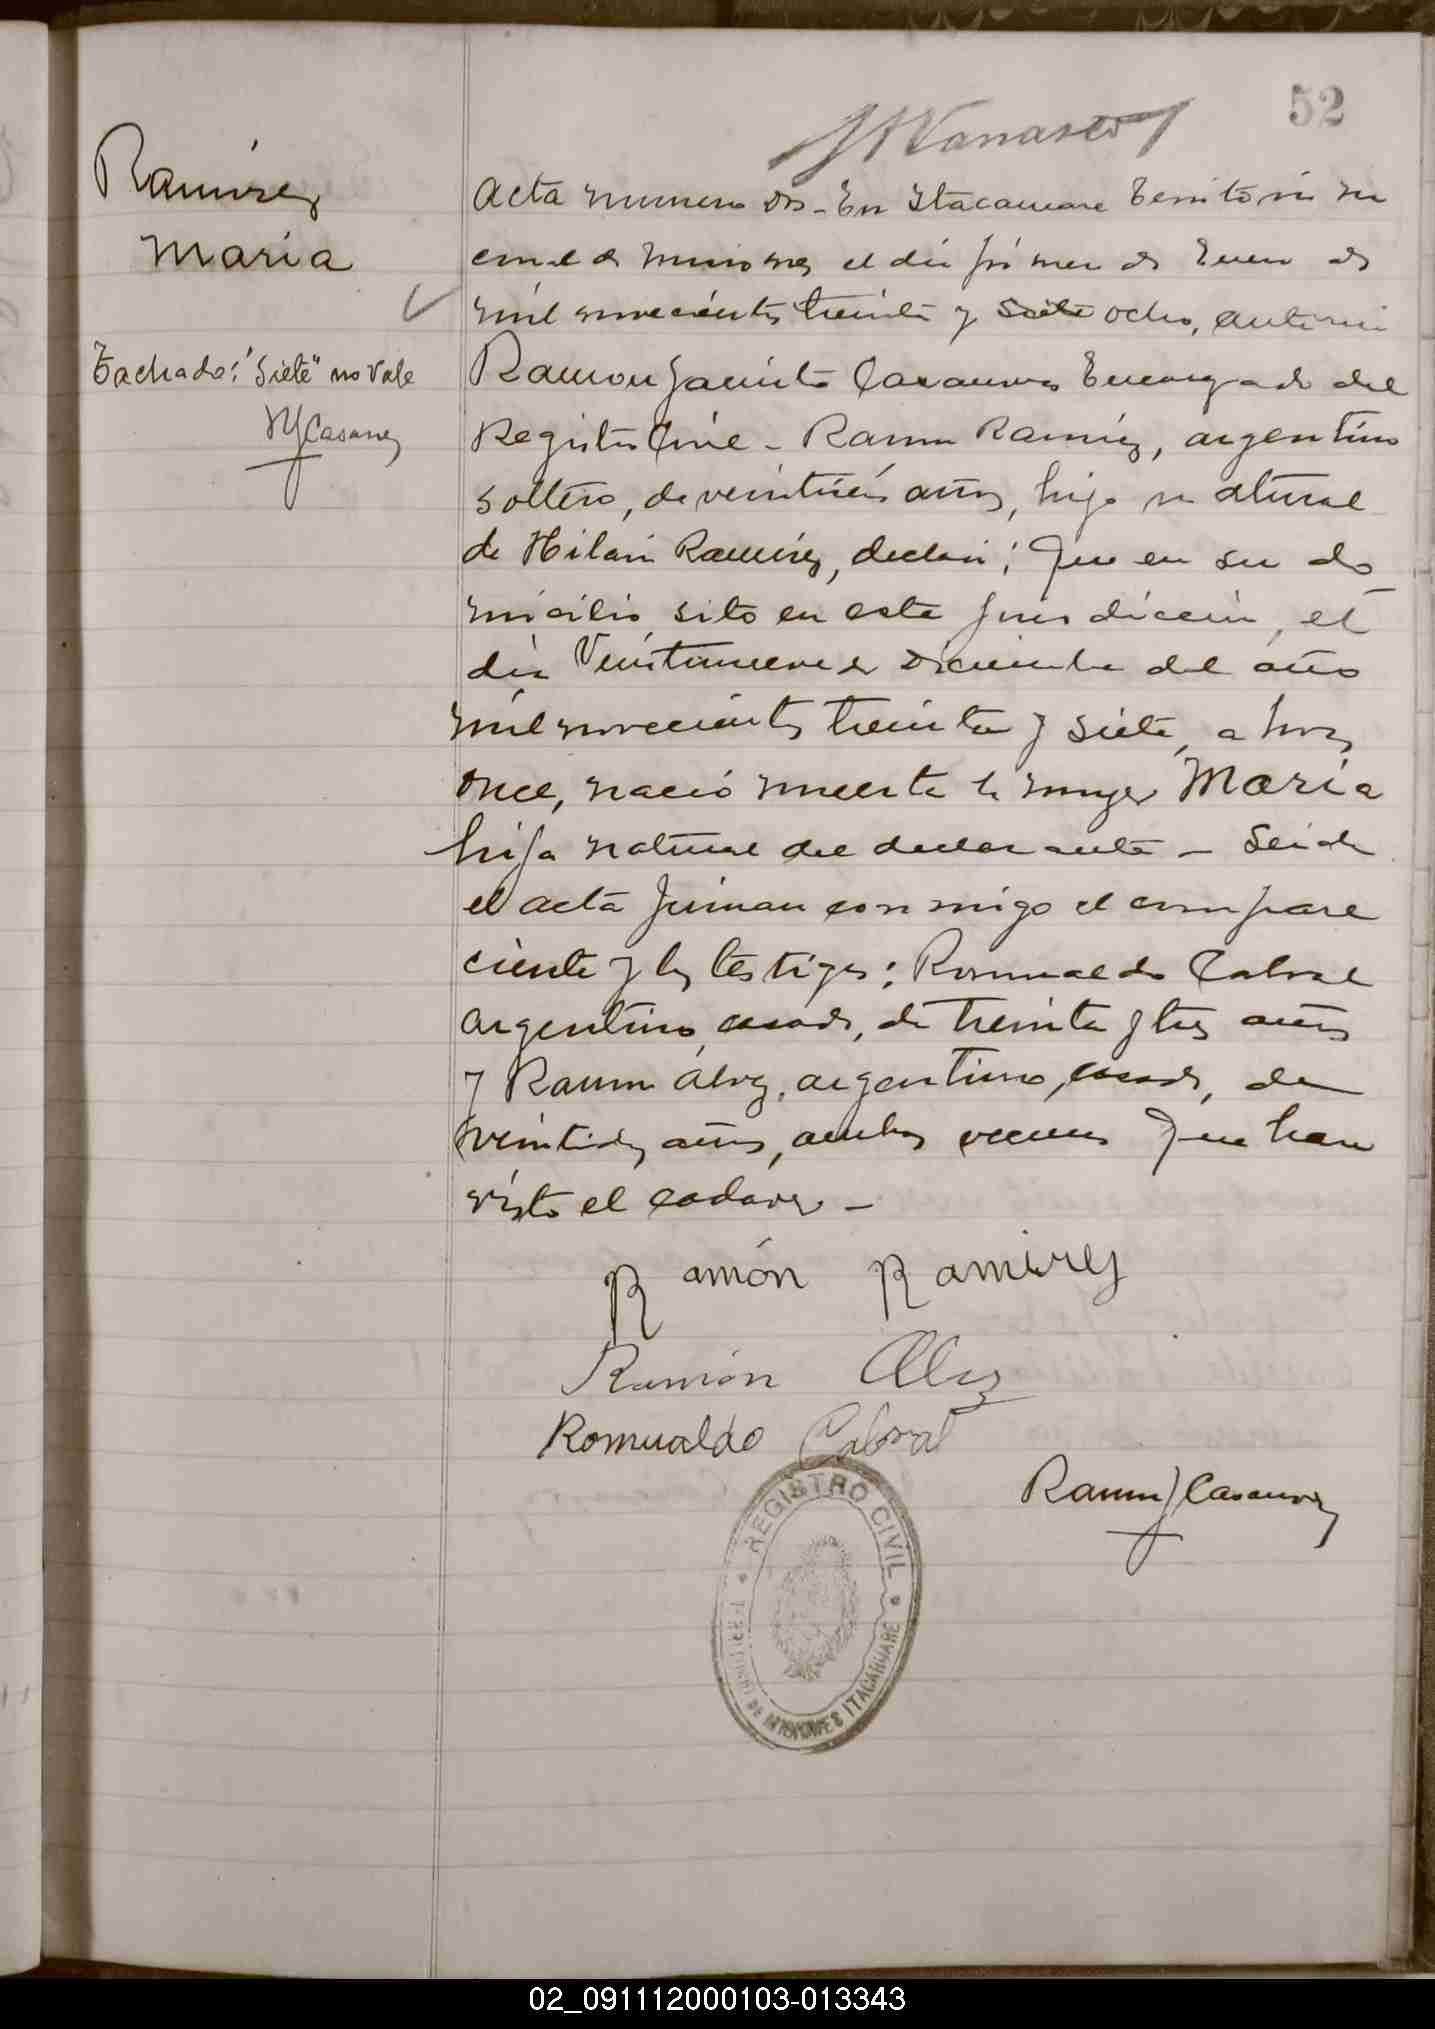 52
Ramirez
Maria
Tachado: "Siete" no vale
RJCasanovez
Acta numero dos - En Itacaruare Territorio na
cional de Misiones el dia primero de Enero de
mil novecientos treinta y siete ocho, ante mi
Ramon Jacinto Casanovez Encargado del
Registro Civil - Ramon Ramirez, argentino
soltero, de veintitres años, hijo natural
de Hilari Ramirez, declaró; Que en su do
micilio sito en esta jurisdiccion, el
dia Veintinueve de Diciembre del año
mil novecientos treinta y siete, a horas
once, nació muerta la mujer Maria
hija natural del declarante - Leida
el acta firman conmigo el compare
ciente y los testigos: Romualdo Cabral
argentino, casado, de treinta y tres años
y Ramon Alvez, argentino, casado, de
veintidos años, ambos vecinos que han
visto el cadaver -
Ramón Ramirez
Ramón Alvez
Romualdo Cabral
Ramon J Casanovez
REGISTRO CIVIL
TERRITORIO DE MISIONES ITACARUARE
02_091112000103-013343